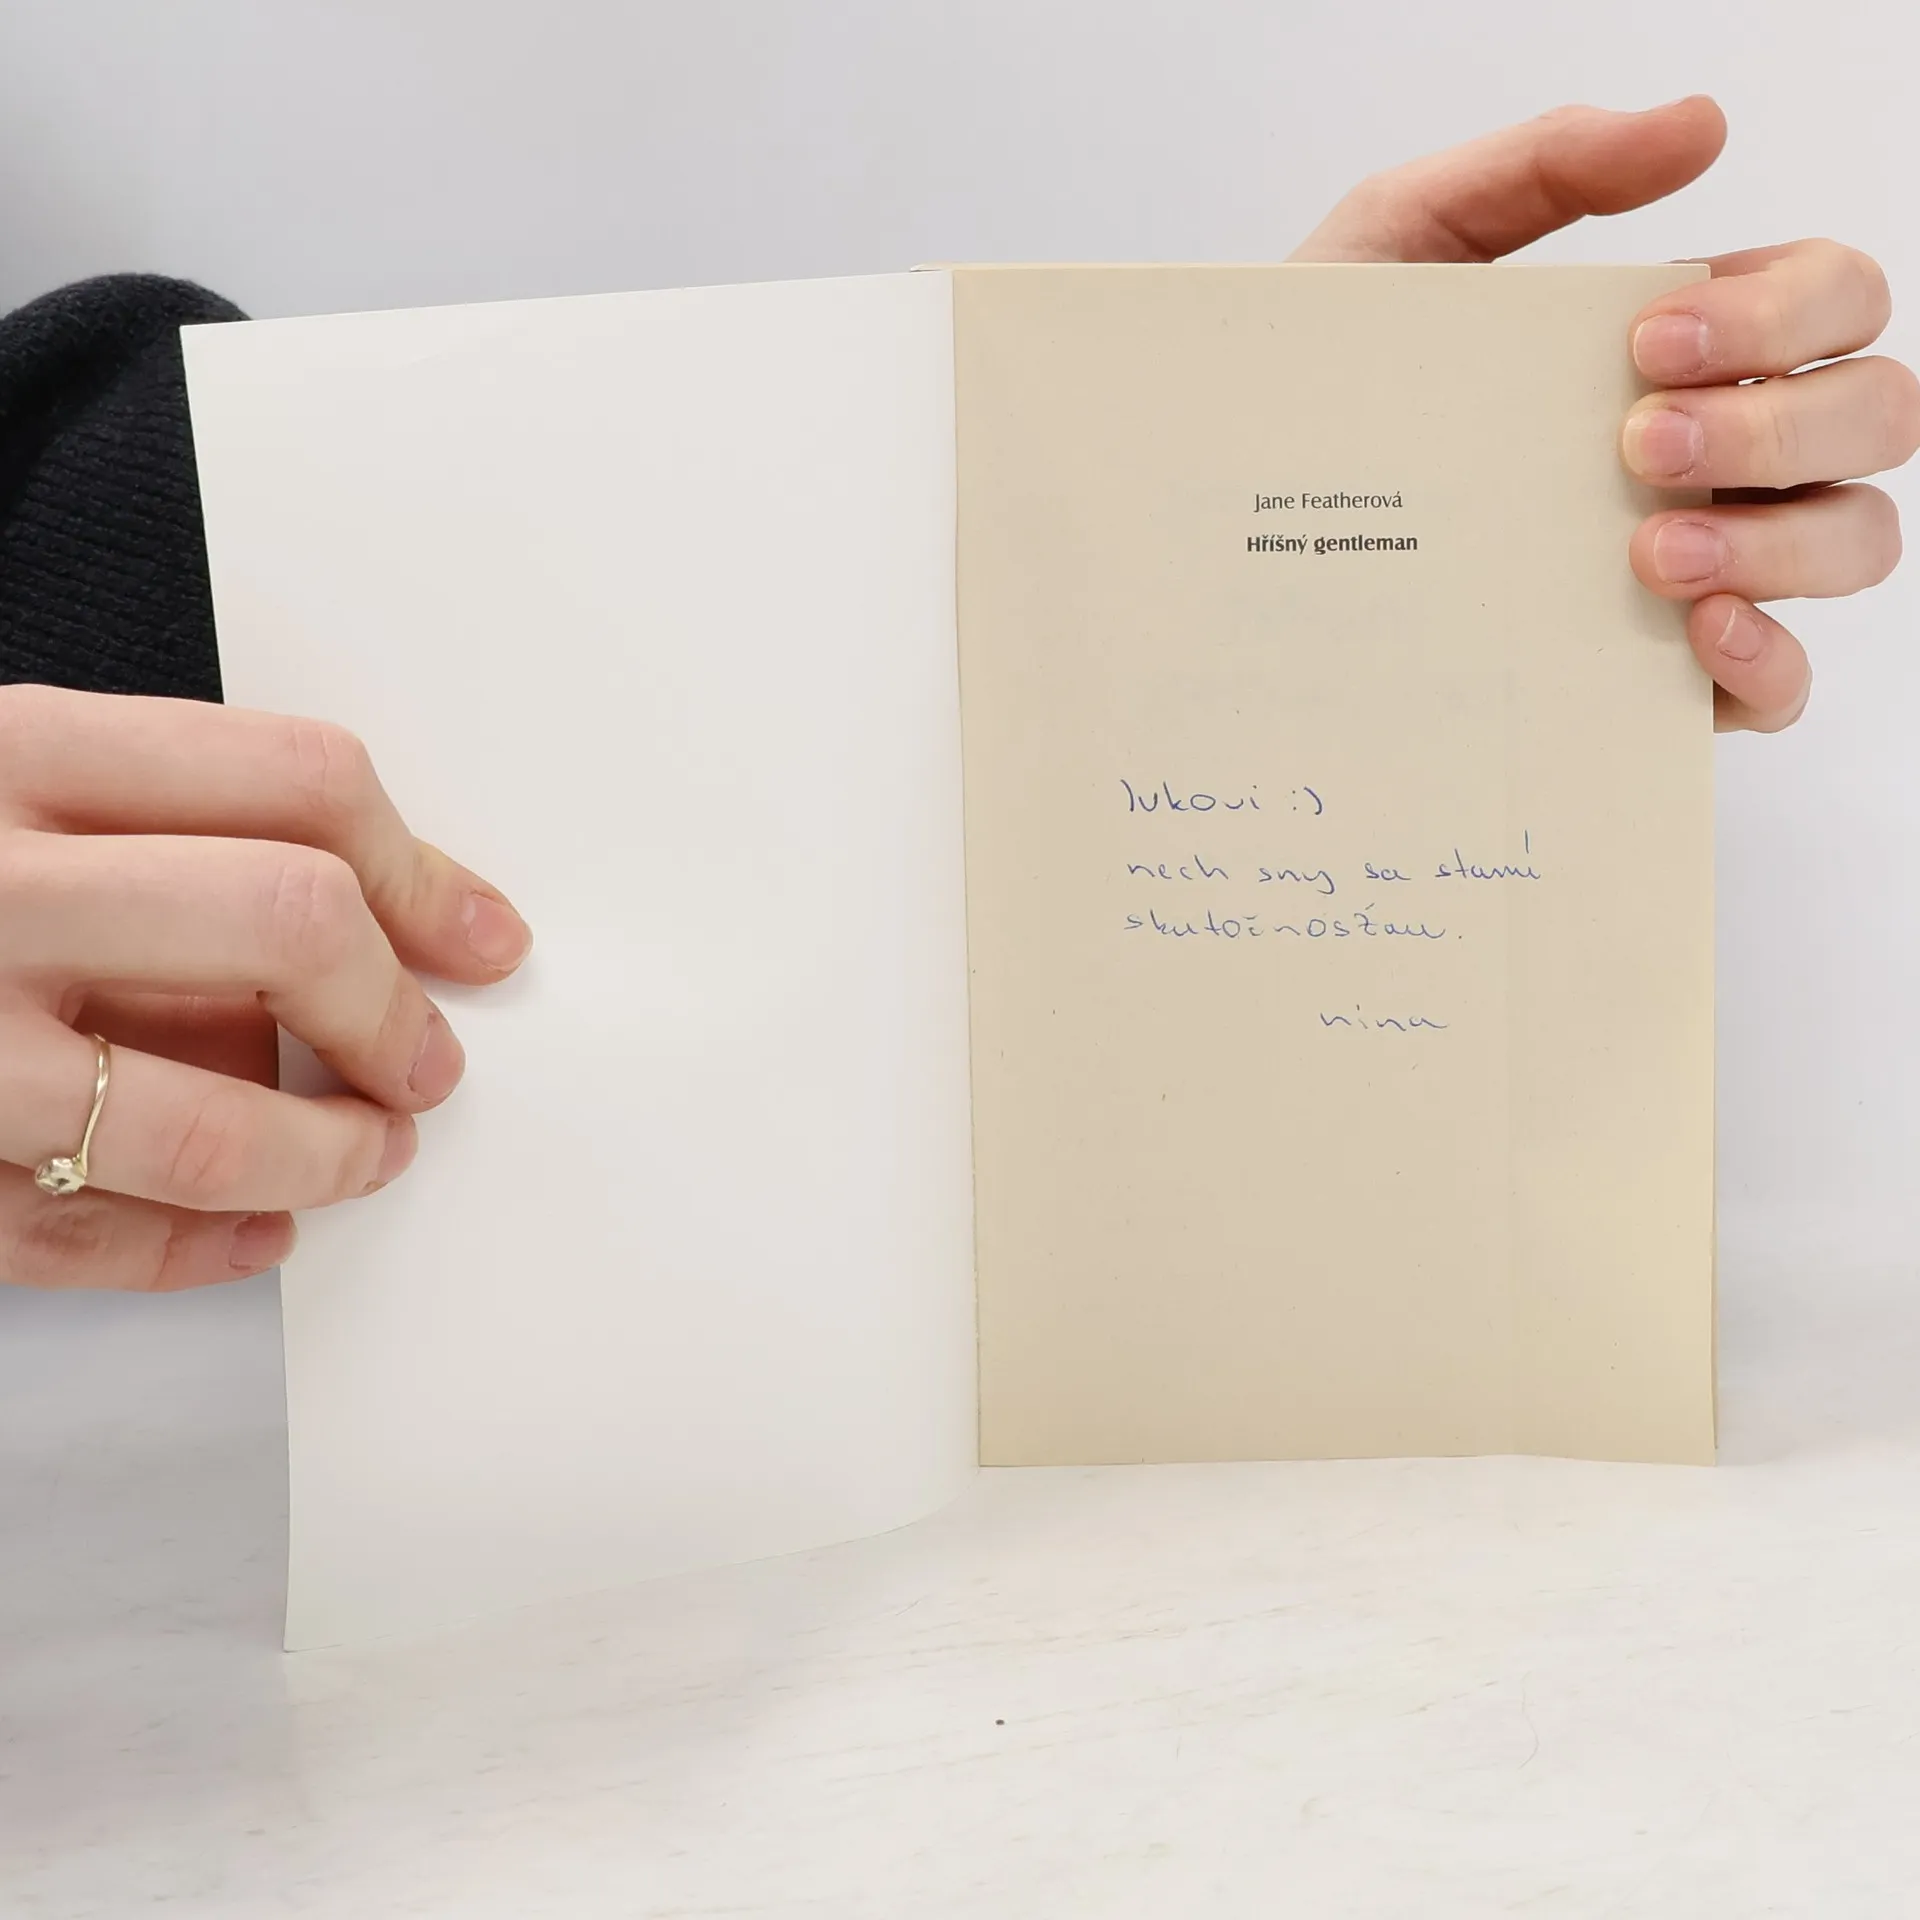 Jane Featherová
Hříšný gentleman
lukovi :)
nech sny sa stanú
skutočnosťou.
nina